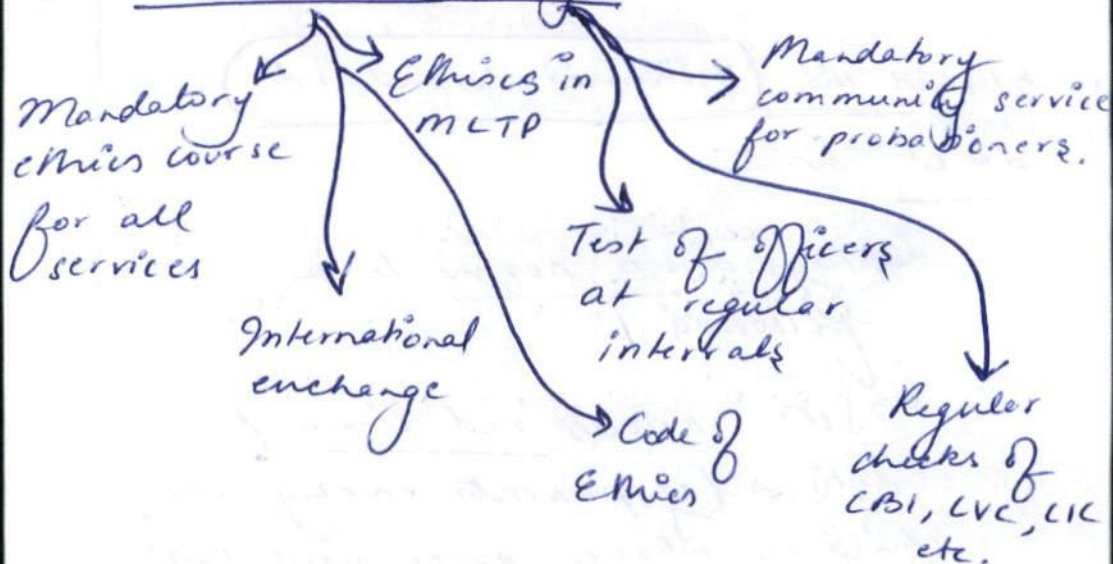 Mandatory
ethics course
for all
services
Ethiscs in
MCTP
Mandatory
community service
for probationers.
International
enchange
Test of officers
at regular
intervals
Code of
Ethics
Regular
checks of
CBI, CVC, CIC
etc.